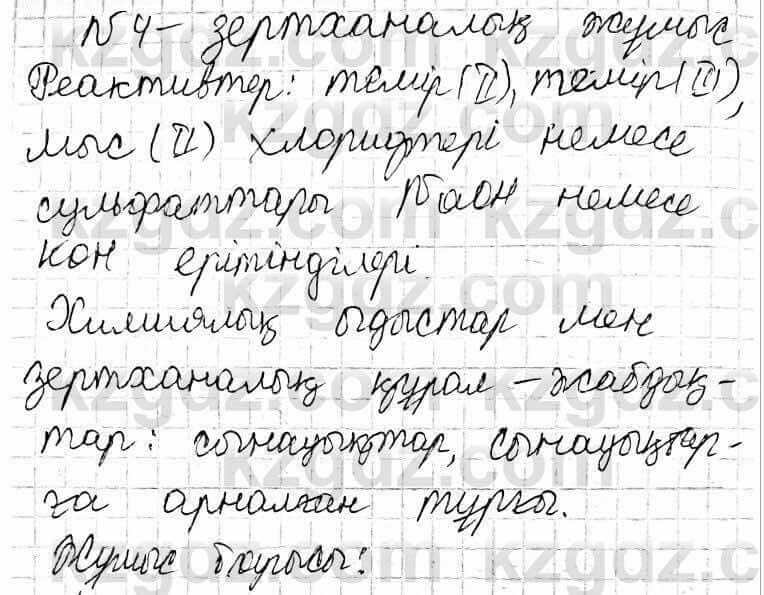 №4 - зертханалық жұмыс
Реактивтер: темір (II), темір (III),
мыс (II) хлоридтері немесе
сульфаттары NаОН немесе
КОН ерітінділері.
Химиялық ыдыстар мен
зертханалық құрал - жабдық-
тар: сынауықтар, сынауықтар-
ға арналған тұрғы.
Жұмыс барысы:
kzgdz.com